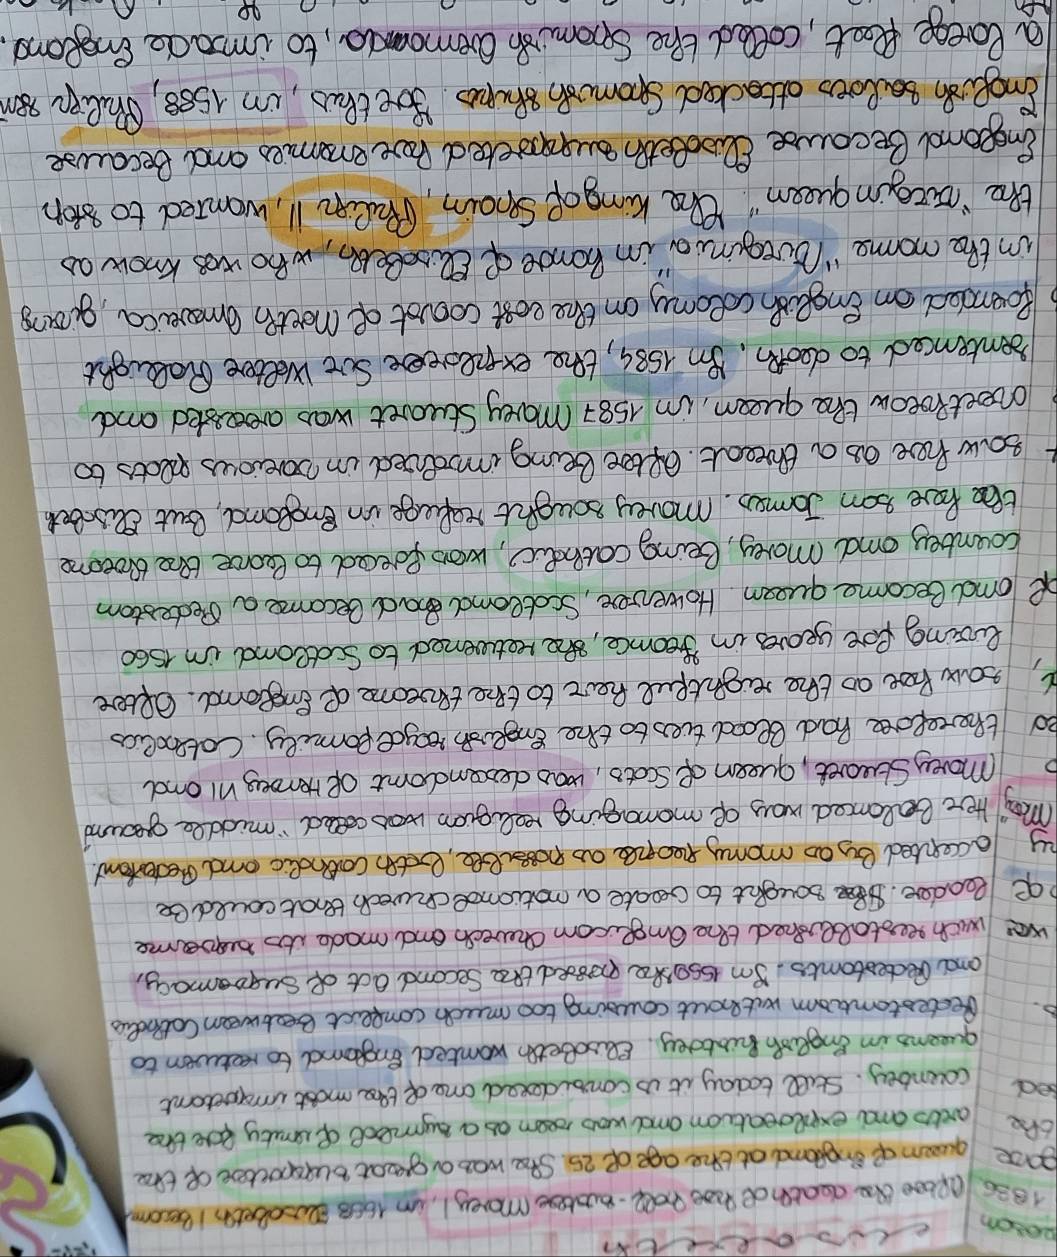 elisabeth
After the death of her half-sister Mary I, in 1558 Elisabeth I become
queen of England at the age of 25. She was a great supporter of the
arts and exploration and was seen as a symbol of unity for the
country. Still today it is considered one of the most important
queens in English history. Elisabeth wanted England to return to
Protestantism without causing too much conflict Beetween Catholics
and Protestants. In 1559 she passed the Second act of Supremacy,
wich restablished the Anglican Church and made its supreme
leader. She sought to create a national church that could be
accepted By as many people as possible, Both catholic and Protestant.
Her Balanced way of managing religion was called "middle ground
Mary Stuart, queen of Scots, was descendant of Henry VII and
therefore had Blood ties to the English royal family. Catholics
saw her as the rightful heir to the throne of England. After
living for years in France, she returned to Scotland in 1560
and Become queen. However, Scotland had Become a Protestant
country and Mary, Being catholic, was forced to leave the throne
to her son James. Mary sought refuge in England, But Elisabeth
saw her as a threat. After Being involved in various plots to
overthrow the queen, in 1587 Mary Stuart was arrested and
sentenced to death. In 1584, the explorer Sir Walter Raleight
founded an English colony on the east coast of North America, giving
in the name "Virginia" in honor of Elisabeth, who was know as
the "virgin queen". The King of Spain, Philip II, wanted to stop
England Because Elisabeth supported her enemies and Because
English sailors attacked Spanish ships. For this, in 1588, Philip sent
a large fleet, called the Spanish Armada, to invade England.